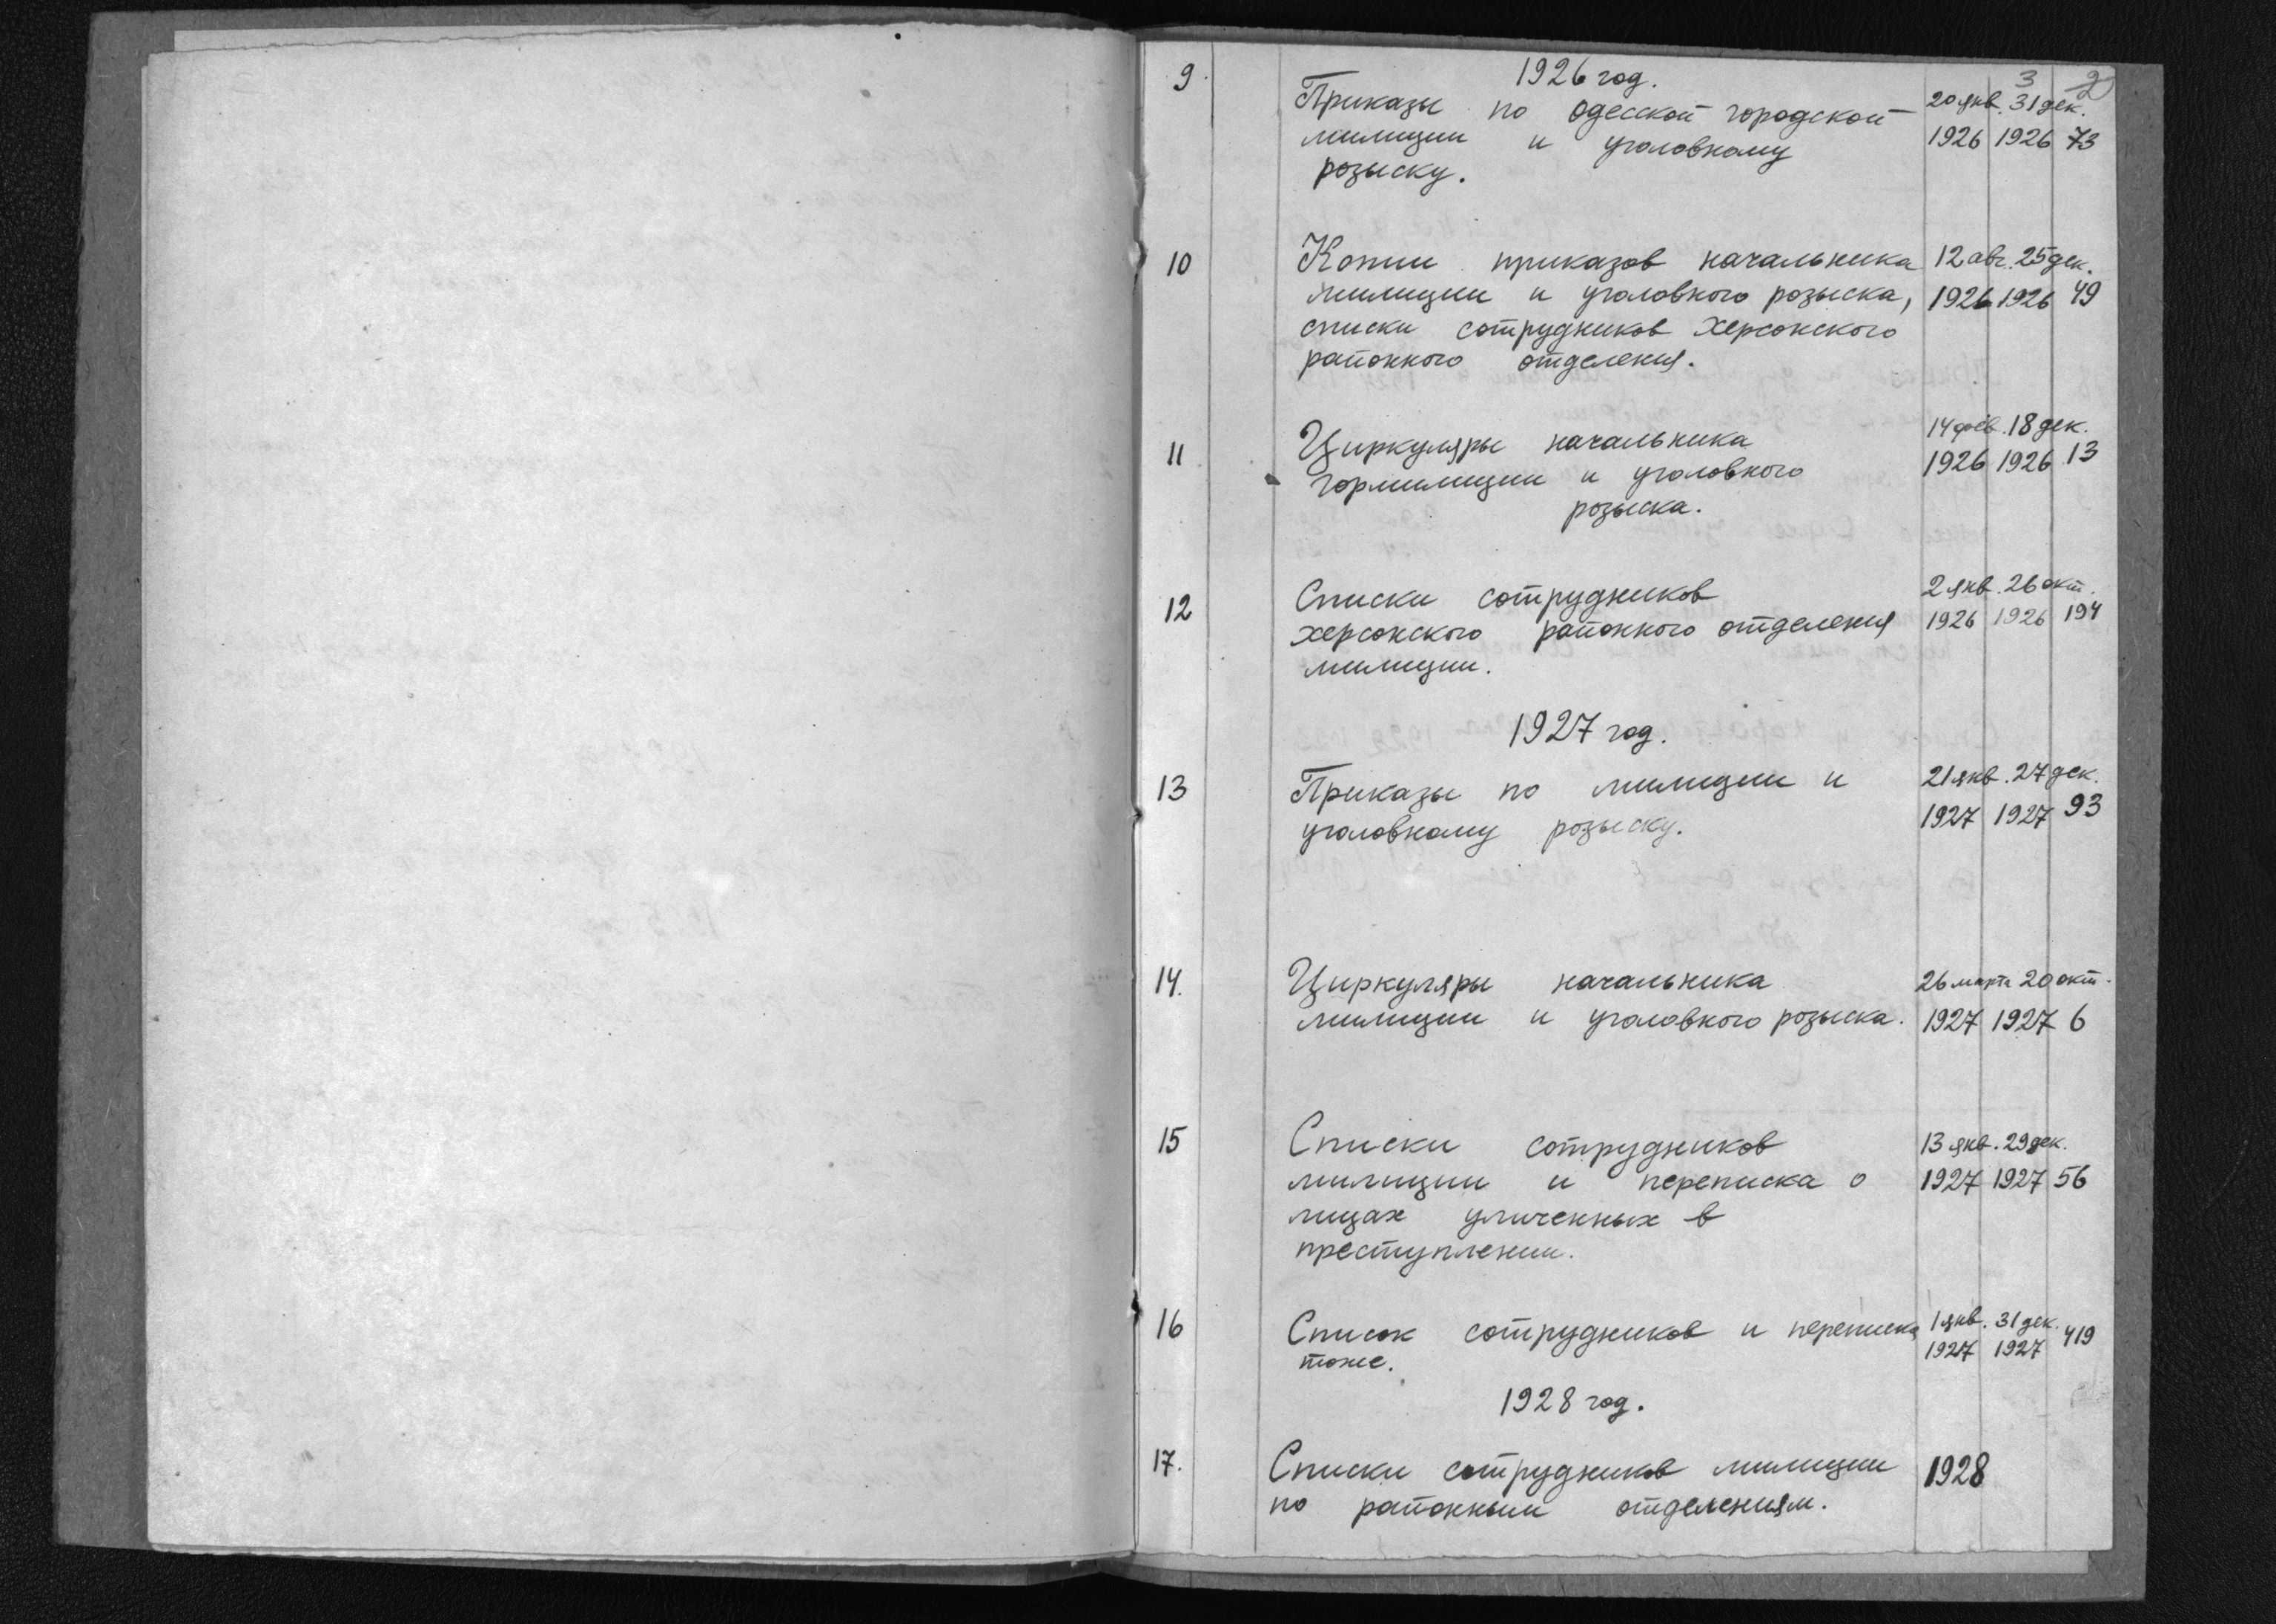 3 2
1926 год.
9. Приказы по Одесской городской 20 янв. 31 дек.
милиции и уголовному 1926 1926 73
розыску.
10 Копии приказов начальника 12 авг. 25 дек.
милиции и уголовного розыска, 1926 1926 49
списки сотрудников Херсонского
районного отделения.
11 Циркуляры начальника 14 фев. 18 дек.
гормилиции и уголовного 1926 1926 13
розыска.
12 Списки сотрудников 2 янв. 26 окт.
херсонского районного отделения 1926 1926 194
милиции.
1927 год.
13 Приказы по милиции и 21 янв. 27 дек.
уголовному розыску. 1927 1927 93
14. Циркуляры начальника 26 марта 20 окт.
милиции и уголовного розыска. 1927 1927 6
15 Списки сотрудников 13 янв. 29 дек.
милиции и переписка о 1927 1927 56
лицах уличенных в
преступлении.
16 Список сотрудников и переписка 1 янв. 31 дек.
тоже. 1927 1927 419
1928 год.
17. Списки сотрудников милиции 1928
по районным отделениям.